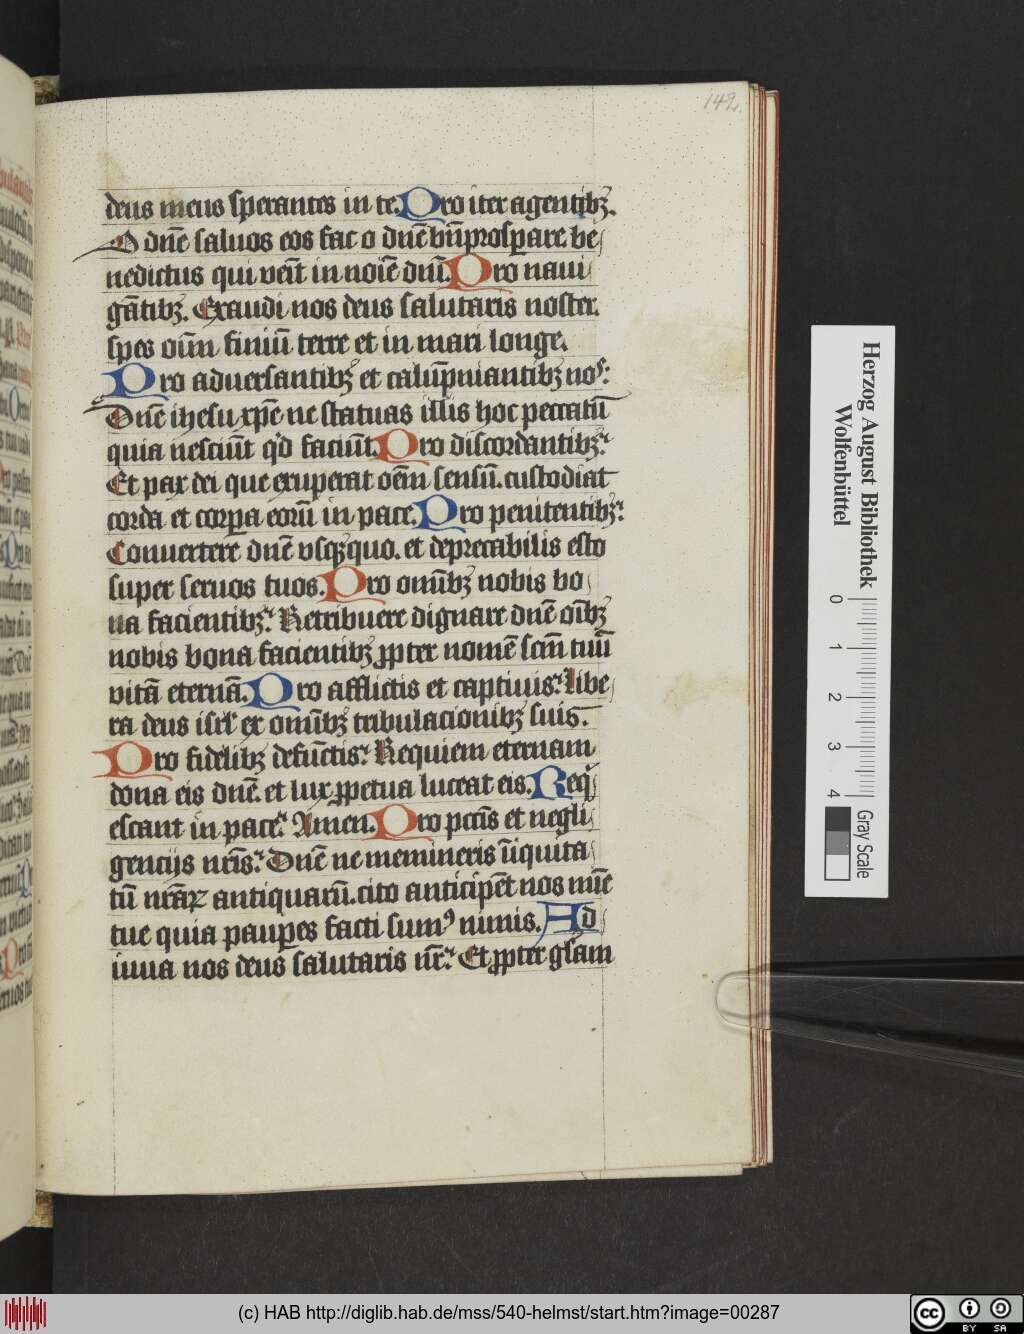 142.
deus meus sperantes in te. Pro iter agentibꝫ.
O dn̄e saluos eos fac o dn̄e bn̄ prosꝑare be/
nedictus qui ven̄t in noīe dn̄i. Pro naui/
gātibꝫ. Exaudi nos deus salutaris noster.
spes oīm finiū terre et in mari longe.
Pro aduersantibꝫ et calūpniantibꝫ noˢ:
Dn̄e ihesu xp̄e ne statuas illis hoc peccatū
quia nesciūt qd̓ faciūt. Pro discordantibꝫ:
Et pax dei que exuperat oēm sensū. custodiat
corda et corꝑa eorū in pace. Pro penitentibꝫ:
Conuertere dn̄e vsqꝫquo. et deprecabilis esto
super seruos tuos. Pro omībꝫ nobis bo/
na facientibꝫ: Retribuere dignare dn̄e oībꝫ
nobis bona facientibꝫ ꝓpter nomē scm̄ tuū
vitā eternā. Pro afflictis et captiuis: Libe/
ra deus isrl̓ ex omībꝫ tribulacionibꝫ suis.
Pro fidelibꝫ defūctis: Requiem eternam
dona eis dn̄e. et lux ꝑpetua luceat eis. Req̓/
escant in pace: Amen. Pro pcc̄is et negli/
gencijs nr̄is: Dn̄e ne memineris īiquita/
tū nr̄aꝝ antiquarū. cito anticipēt nos mīe
tue quia pauꝑes facti sumꝰ nimis. Ad/
iuua nos deus salutaris nr̄: Et ꝓpter gl̓am
Herzog August Bibliothek
Wolfenbüttel
0
1
2
3
4
Gray Scale
(c) HAB http://diglib.hab.de/mss/540-helmst/start.htm?image=00287
cc BY SA